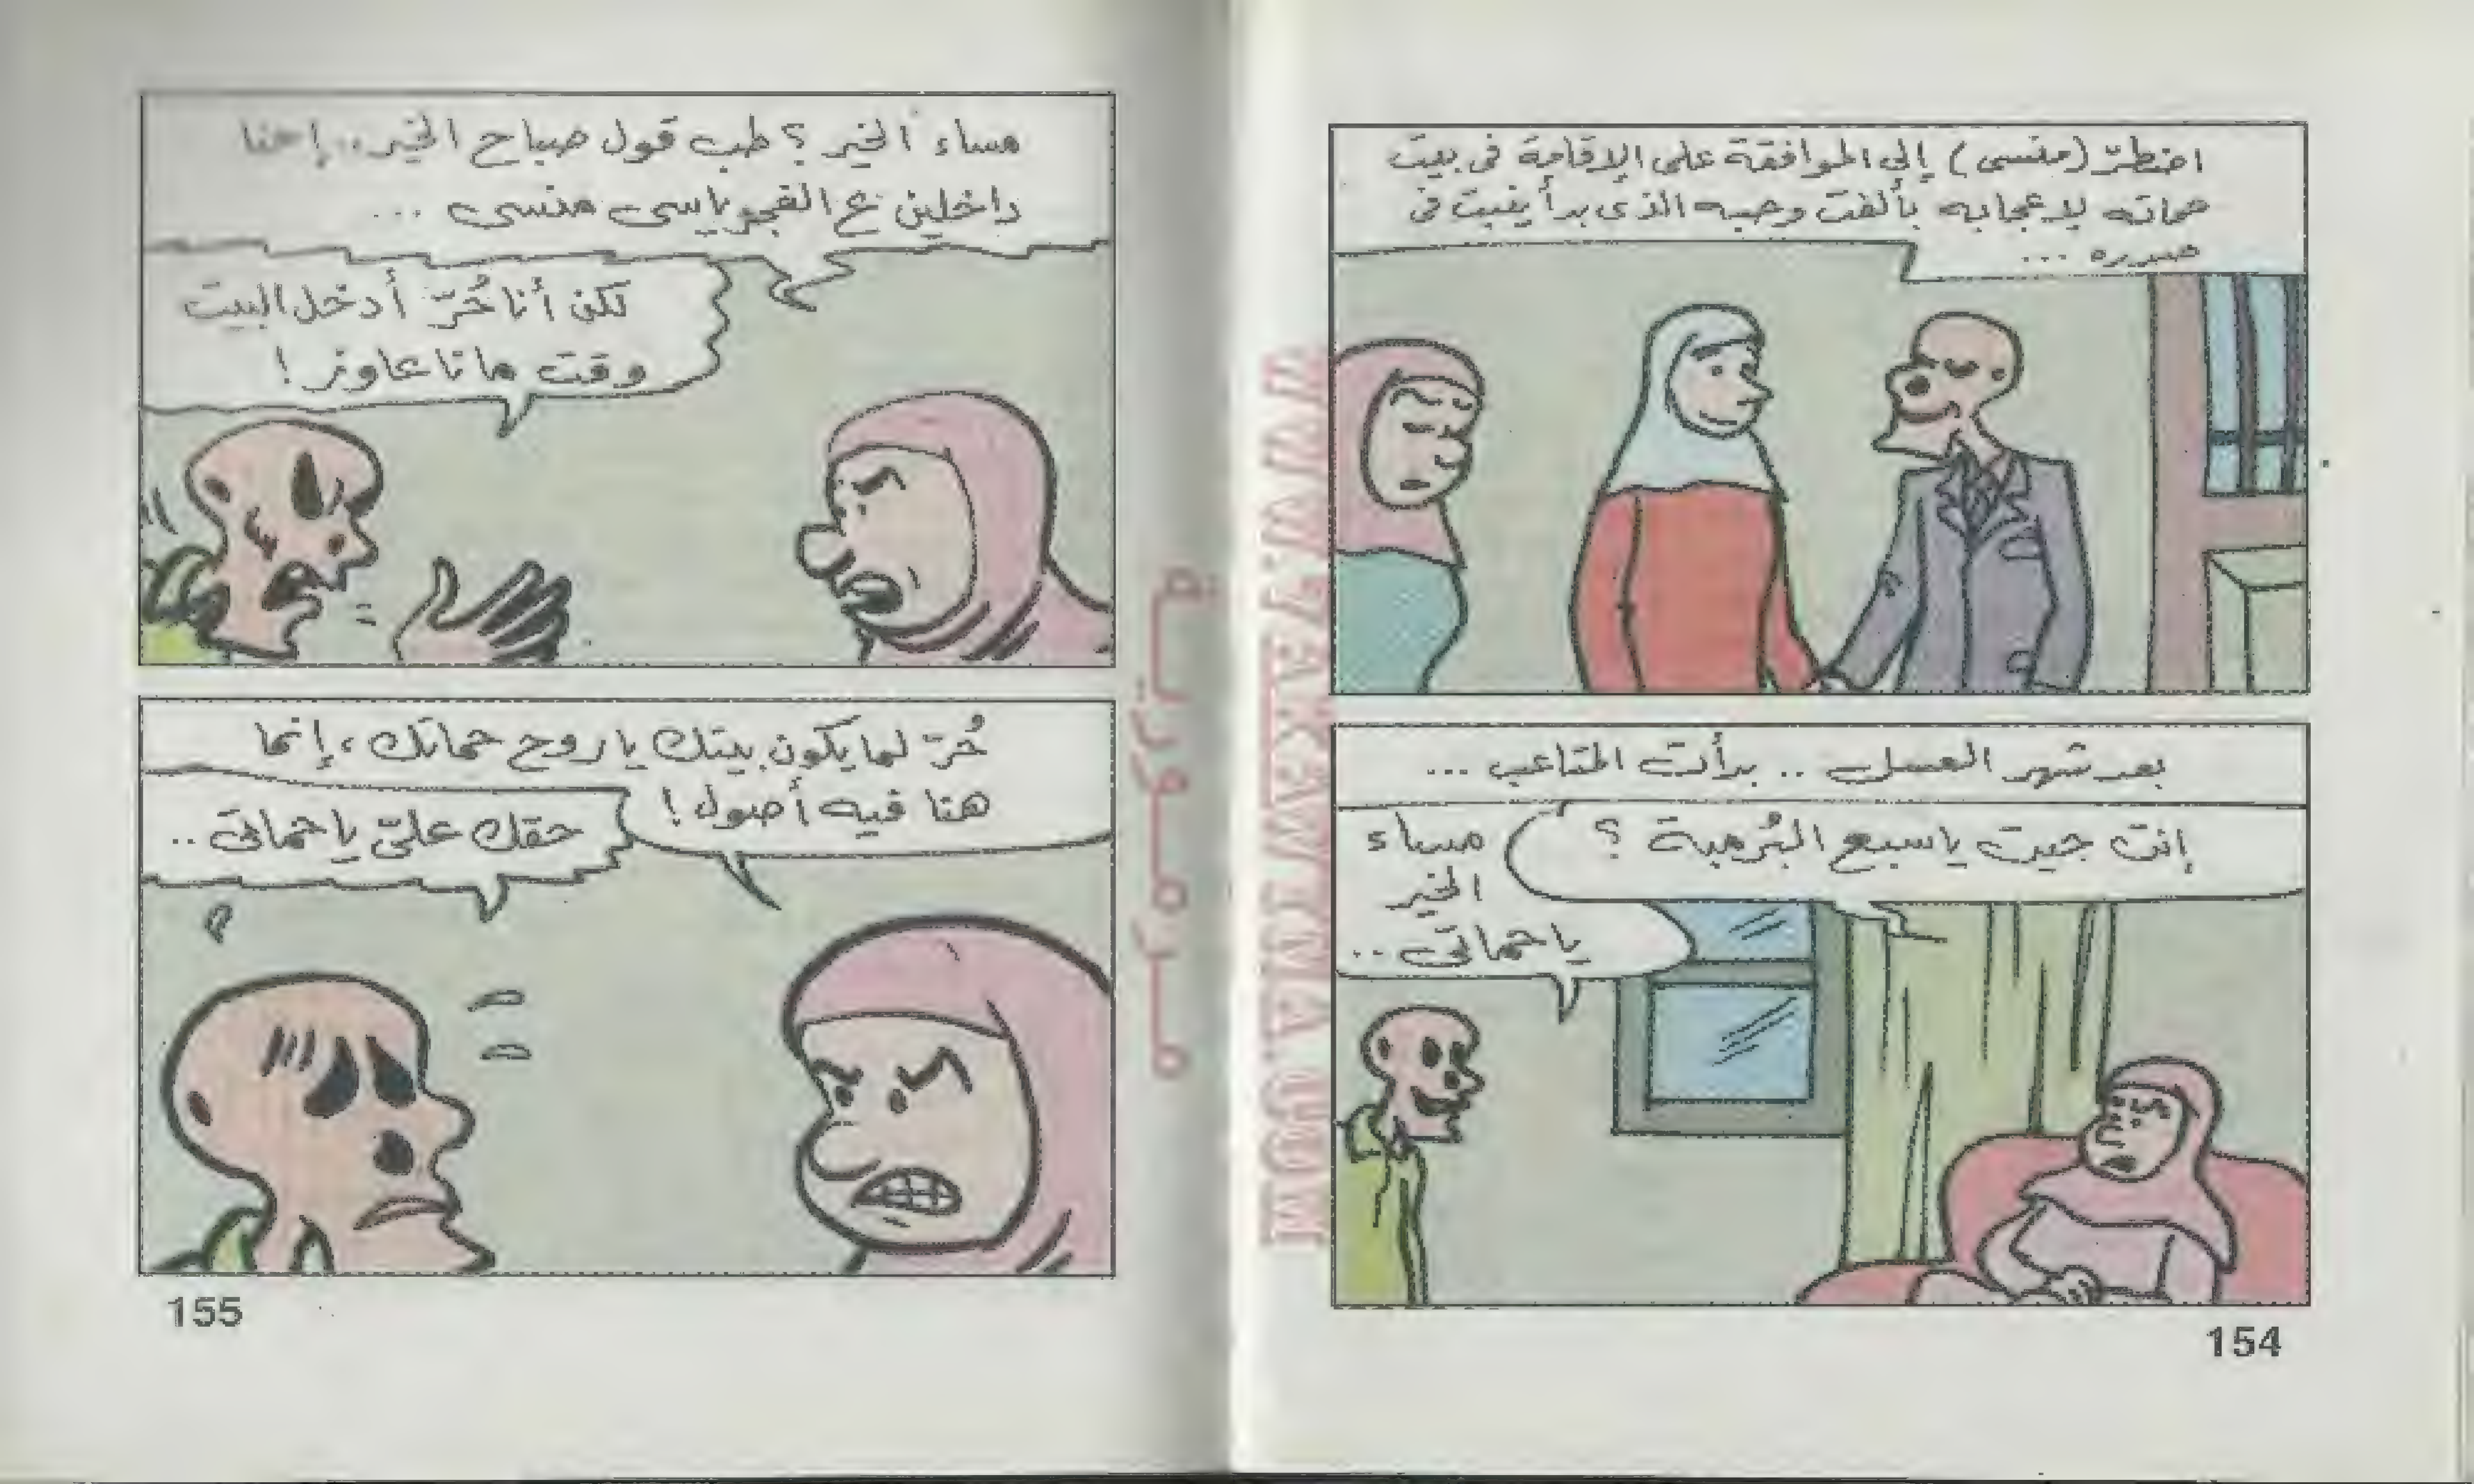 اضطرّ (منسى) إلى الموافقة على الإقامة فى بيت
حماته لإعجابه بألفت وحبه الذى بدأ ينبت فى
صدره ...
بعد شهر العسل .. بدأت المتاعب ...
إنت جيت ياسبع البُرمبة ؟
مساء
الخير
ياحماتى ..
154
مساء الخير ؟ طب قول صباح الخير .. إحنا
داخلين ع الفجر ياسى منسى ...
لكن أنا حُرّ أدخل البيت
وقت مانا عاوز !
حُرّ لما يكون بيتك ياروح حماتك ، إنما
هنا فيه أصول !
حقك علىّ ياحماتى ..
155
مرمورية